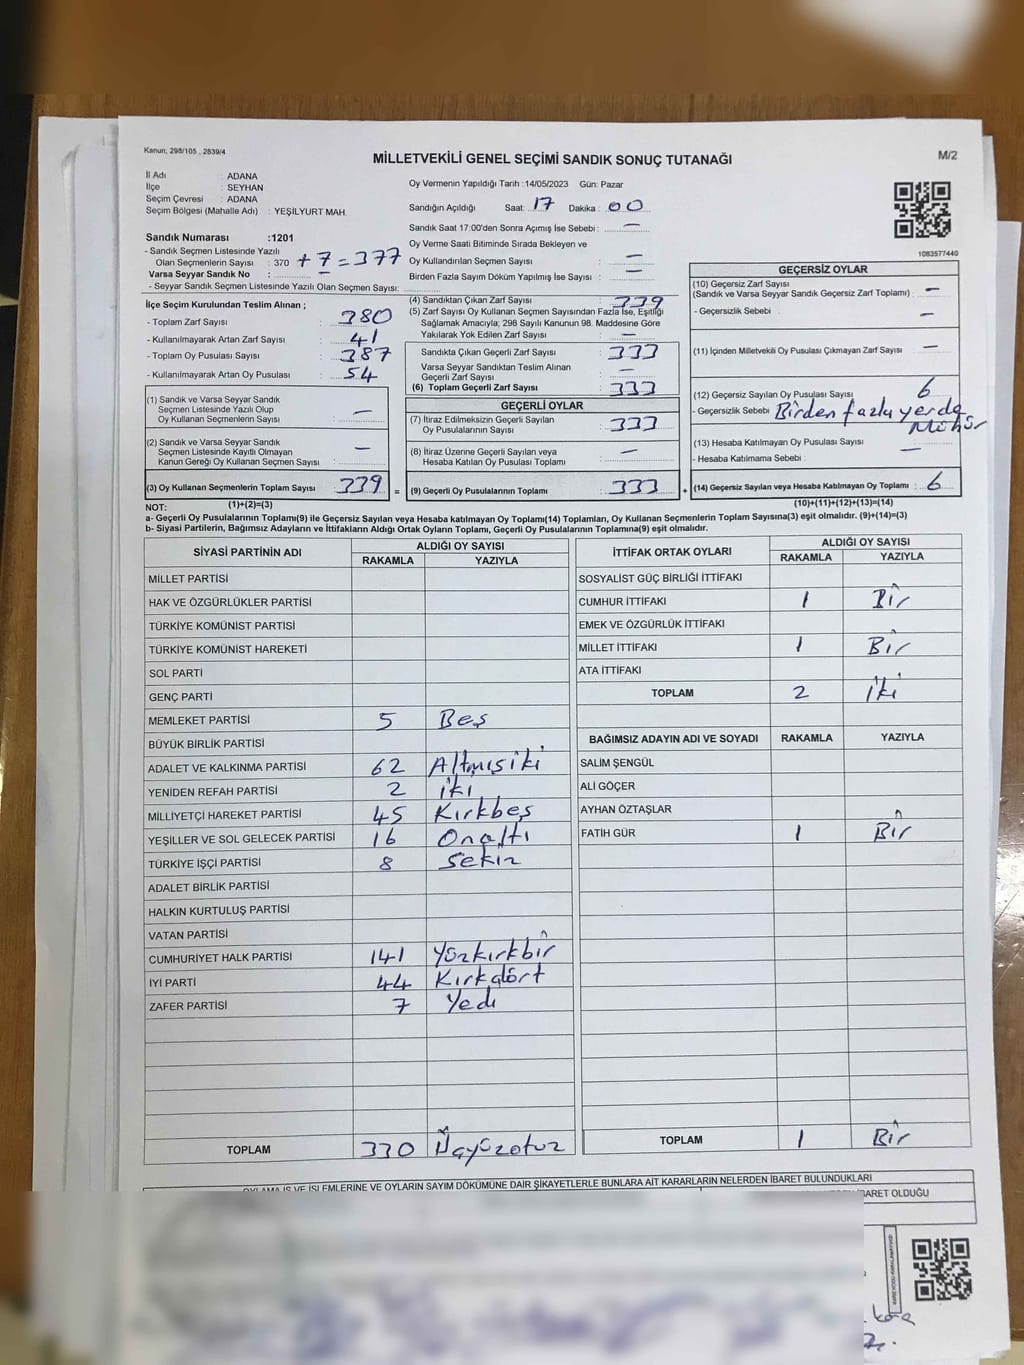 Kanun, 298/105 , 2839/4
MİLLETVEKİLİ GENEL SEÇİMİ SANDIK SONUÇ TUTANAĞI
M/2
İl Adı : ADANA
İlçe : SEYHAN
Seçim Çevresi : ADANA
Seçim Bölgesi (Mahalle Adı) : YEŞİLYURT MAH.
Oy Vermenin Yapıldığı Tarih :14/05/2023 Gün: Pazar
Sandığın Açıldığı Saat: 17 Dakika : 00
Sandık Saat 17:00'den Sonra Açımış İse Sebebi : —
Oy Verme Saati Bitiminde Sırada Bekleyen ve
Oy Kullandırılan Seçmen Sayısı : —
Birden Fazla Sayım Döküm Yapılmış İse Sayısı : —
1083577440
Sandık Numarası :1201
- Sandık Seçmen Listesinde Yazılı
Olan Seçmenlerin Sayısı : 370 + 7 = 377
Varsa Seyyar Sandık No : —
- Seyyar Sandık Seçmen Listesinde Yazılı Olan Seçmen Sayısı:
İlçe Seçim Kurulundan Teslim Alınan ;
- Toplam Zarf Sayısı : 380
- Kullanılmayarak Artan Zarf Sayısı : 41
- Toplam Oy Pusulası Sayısı : 387
- Kullanılmayarak Artan Oy Pusulası : 54
(1) Sandık ve Varsa Seyyar Sandık
Seçmen Listesinde Yazılı Olup
Oy Kullanan Seçmenlerin Sayısı : —
(2) Sandık ve Varsa Seyyar Sandık
Seçmen Listesinde Kayıtlı Olmayan
Kanun Gereği Oy Kullanan Seçmen Sayısı : —
(3) Oy Kullanan Seçmenlerin Toplam Sayısı : 339
(1)+(2)=(3)
(4) Sandıktan Çıkan Zarf Sayısı : 339
(5) Zarf Sayısı Oy Kullanan Seçmen Sayısından Fazla İse, Eşitliği
Sağlamak Amacıyla; 298 Sayılı Kanunun 98. Maddesine Göre
Yakılarak Yok Edilen Zarf Sayısı : —
Sandıkta Çıkan Geçerli Zarf Sayısı : 333
Varsa Seyyar Sandıktan Teslim Alınan
Geçerli Zarf Sayısı : —
(6) Toplam Geçerli Zarf Sayısı : 333
GEÇERLİ OYLAR
(7) İtiraz Edilmeksizin Geçerli Sayılan
Oy Pusulalarının Sayısı : 333
(8) İtiraz Üzerine Geçerli Sayılan veya
Hesaba Katılan Oy Pusulası Toplamı : —
= (9) Geçerli Oy Pusulalarının Toplamı : 333 +
GEÇERSİZ OYLAR
(10) Geçersiz Zarf Sayısı
(Sandık ve Varsa Seyyar Sandık Geçersiz Zarf Toplamı) : —
- Geçersizlik Sebebi : —
(11) İçinden Milletvekili Oy Pusulası Çıkmayan Zarf Sayısı : —
(12) Geçersiz Sayılan Oy Pusulası Sayısı : 6
- Geçersizlik Sebebi : Birden fazla yerde
Mühür
(13) Hesaba Katılmayan Oy Pusulası Sayısı : —
- Hesaba Katılmama Sebebi :
(14) Geçersiz Sayılan veya Hesaba Katılmayan Oy Toplamı : 6
(10)+(11)+(12)+(13)=(14)
NOT:
a- Geçerli Oy Pusulalarının Toplamı(9) ile Geçersiz Sayılan veya Hesaba katılmayan Oy Toplamı(14) Toplamları, Oy Kullanan Seçmenlerin Toplam Sayısına(3) eşit olmalıdır. (9)+(14)=(3)
b- Siyasi Partilerin, Bağımsız Adayların ve İttifakların Aldığı Ortak Oyların Toplamı, Geçerli Oy Pusulalarının Toplamına(9) eşit olmalıdır.
SİYASİ PARTİNİN ADI ALDIĞI OY SAYISI
RAKAMLA YAZIYLA
MİLLET PARTİSİ
HAK VE ÖZGÜRLÜKLER PARTİSİ
TÜRKİYE KOMÜNİST PARTİSİ
TÜRKİYE KOMÜNİST HAREKETİ
SOL PARTİ
GENÇ PARTİ
MEMLEKET PARTİSİ 5 Beş
BÜYÜK BİRLİK PARTİSİ
ADALET VE KALKINMA PARTİSİ 62 Altmışiki
YENİDEN REFAH PARTİSİ 2 iki
MİLLİYETÇİ HAREKET PARTİSİ 45 Kırkbeş
YEŞİLLER VE SOL GELECEK PARTİSİ 16 Onaltı
TÜRKİYE İŞÇİ PARTİSİ 8 Sekiz
ADALET BİRLİK PARTİSİ
HALKIN KURTULUŞ PARTİSİ
VATAN PARTİSİ
CUMHURİYET HALK PARTİSİ 141 Yüzkırkbir
İYİ PARTİ 44 Kırkdört
ZAFER PARTİSİ 7 Yedi
TOPLAM 330 Üçyüzotuz
İTTİFAK ORTAK OYLARI ALDIĞI OY SAYISI
RAKAMLA YAZIYLA
SOSYALİST GÜÇ BİRLİĞİ İTTİFAKI
CUMHUR İTTİFAKI 1 Bir
EMEK VE ÖZGÜRLÜK İTTİFAKI
MİLLET İTTİFAKI 1 Bir
ATA İTTİFAKI
TOPLAM 2 iki
BAĞIMSIZ ADAYIN ADI VE SOYADI RAKAMLA YAZIYLA
SALİM ŞENGÜL
ALİ GÖÇER
AYHAN ÖZTAŞLAR
FATİH GÜR 1 Bir
TOPLAM 1 Bir
OYLAMA İŞ VE İŞLEMLERİNE VE OYLARIN SAYIM DÖKÜMÜNE DAİR ŞİKAYETLERLE BUNLARA AİT KARARLARIN NELERDEN İBARET BULUNDUKLARI
BARET OLDUĞU